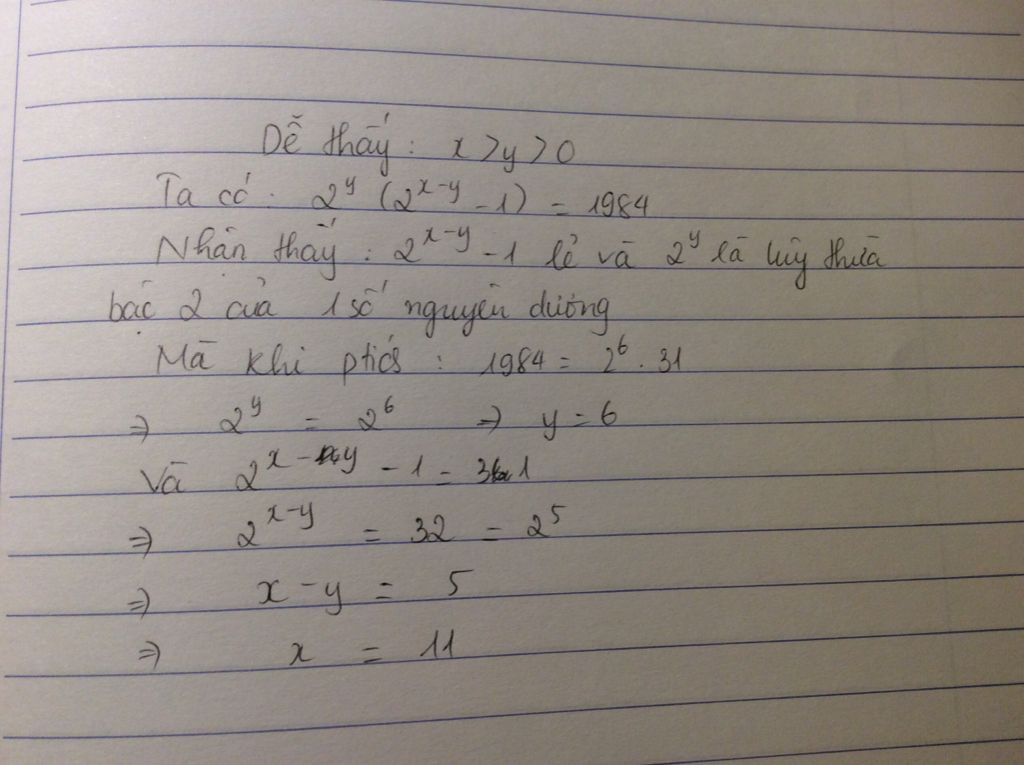 Dễ thấy: x > y > 0
Ta có: 2^y (2^{x-y} - 1) = 1984
Nhận thấy: 2^{x-y} - 1 lẻ và 2^y là lũy thừa
bậc 2 của 1 số nguyên dương
Mà khi ptích: 1984 = 2^6 . 31
⇒ 2^y = 2^6 ⇒ y = 6
Và 2^{x-y} - 1 = 31
⇒ 2^{x-y} = 32 = 2^5
⇒ x - y = 5
⇒ x = 11